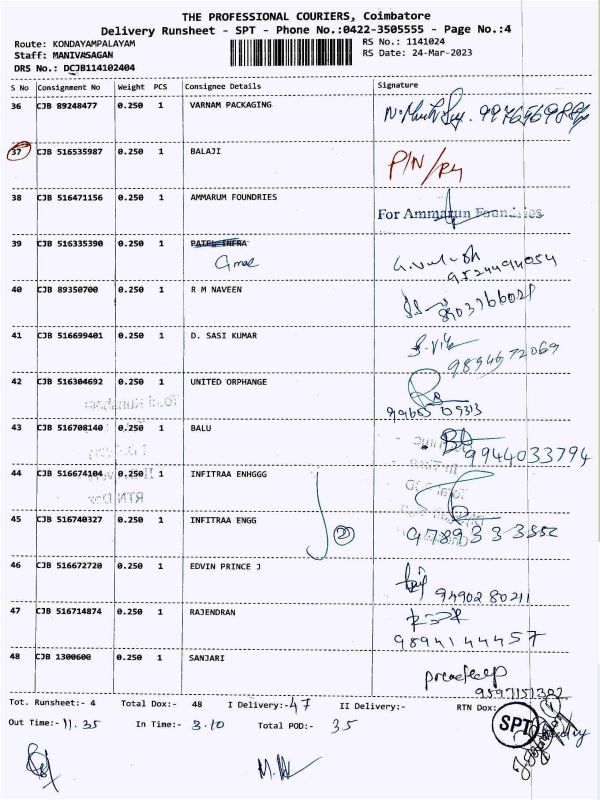 THE PROFESSIONAL COURIERS, Coimbatore
Delivery Runsheet - SPT - Phone No.:0422-3505555 - Page No.:4
Route: KONDAYAMPALAYAM
RS No.: 1141024
Staff: MANIVASAGAN
RS Date: 24-Mar-2023
DRS No.: DCJB114102404
S No Consignment No Weight PCS Consignee Details Signature
36 CJB 89248477 0.250 1 VARNAM PACKAGING
37 CJB 516535987 0.250 1 BALAJI PIN/
38 CJB 516471156 0.250 1 AMMARUM FOUNDRIES
For Ammarum Foundries
39 CJB 516335390 0.250 1 PATEL INFRA
9524494054
40 CJB 89350700 0.250 1 R M NAVEEN
41 CJB 516699401 0.250 1 D. SASI KUMAR
9894972069
42 CJB 516304692 0.250 1 UNITED ORPHANGE
43 CJB 516708140 0.250 1 BALU
9944033794
44 CJB 516674104 0.250 1 INFITRAA ENHGGG
45 CJB 516740327 0.250 1 INFITRAA ENGG 2
46 CJB 516672720 0.250 1 EDVIN PRINCE J
9490280211
47 CJB 516714874 0.250 1 RAJENDRAN
9894144457
48 CJB 1300600 0.250 1 SANJARI
Tot. Runsheet:- 4 Total Dox:- 48 I Delivery:- 47 II Delivery:- RTN Dox:
Out Time:- 11.35 In Time:- 3.10 Total POD:- 35 SPT